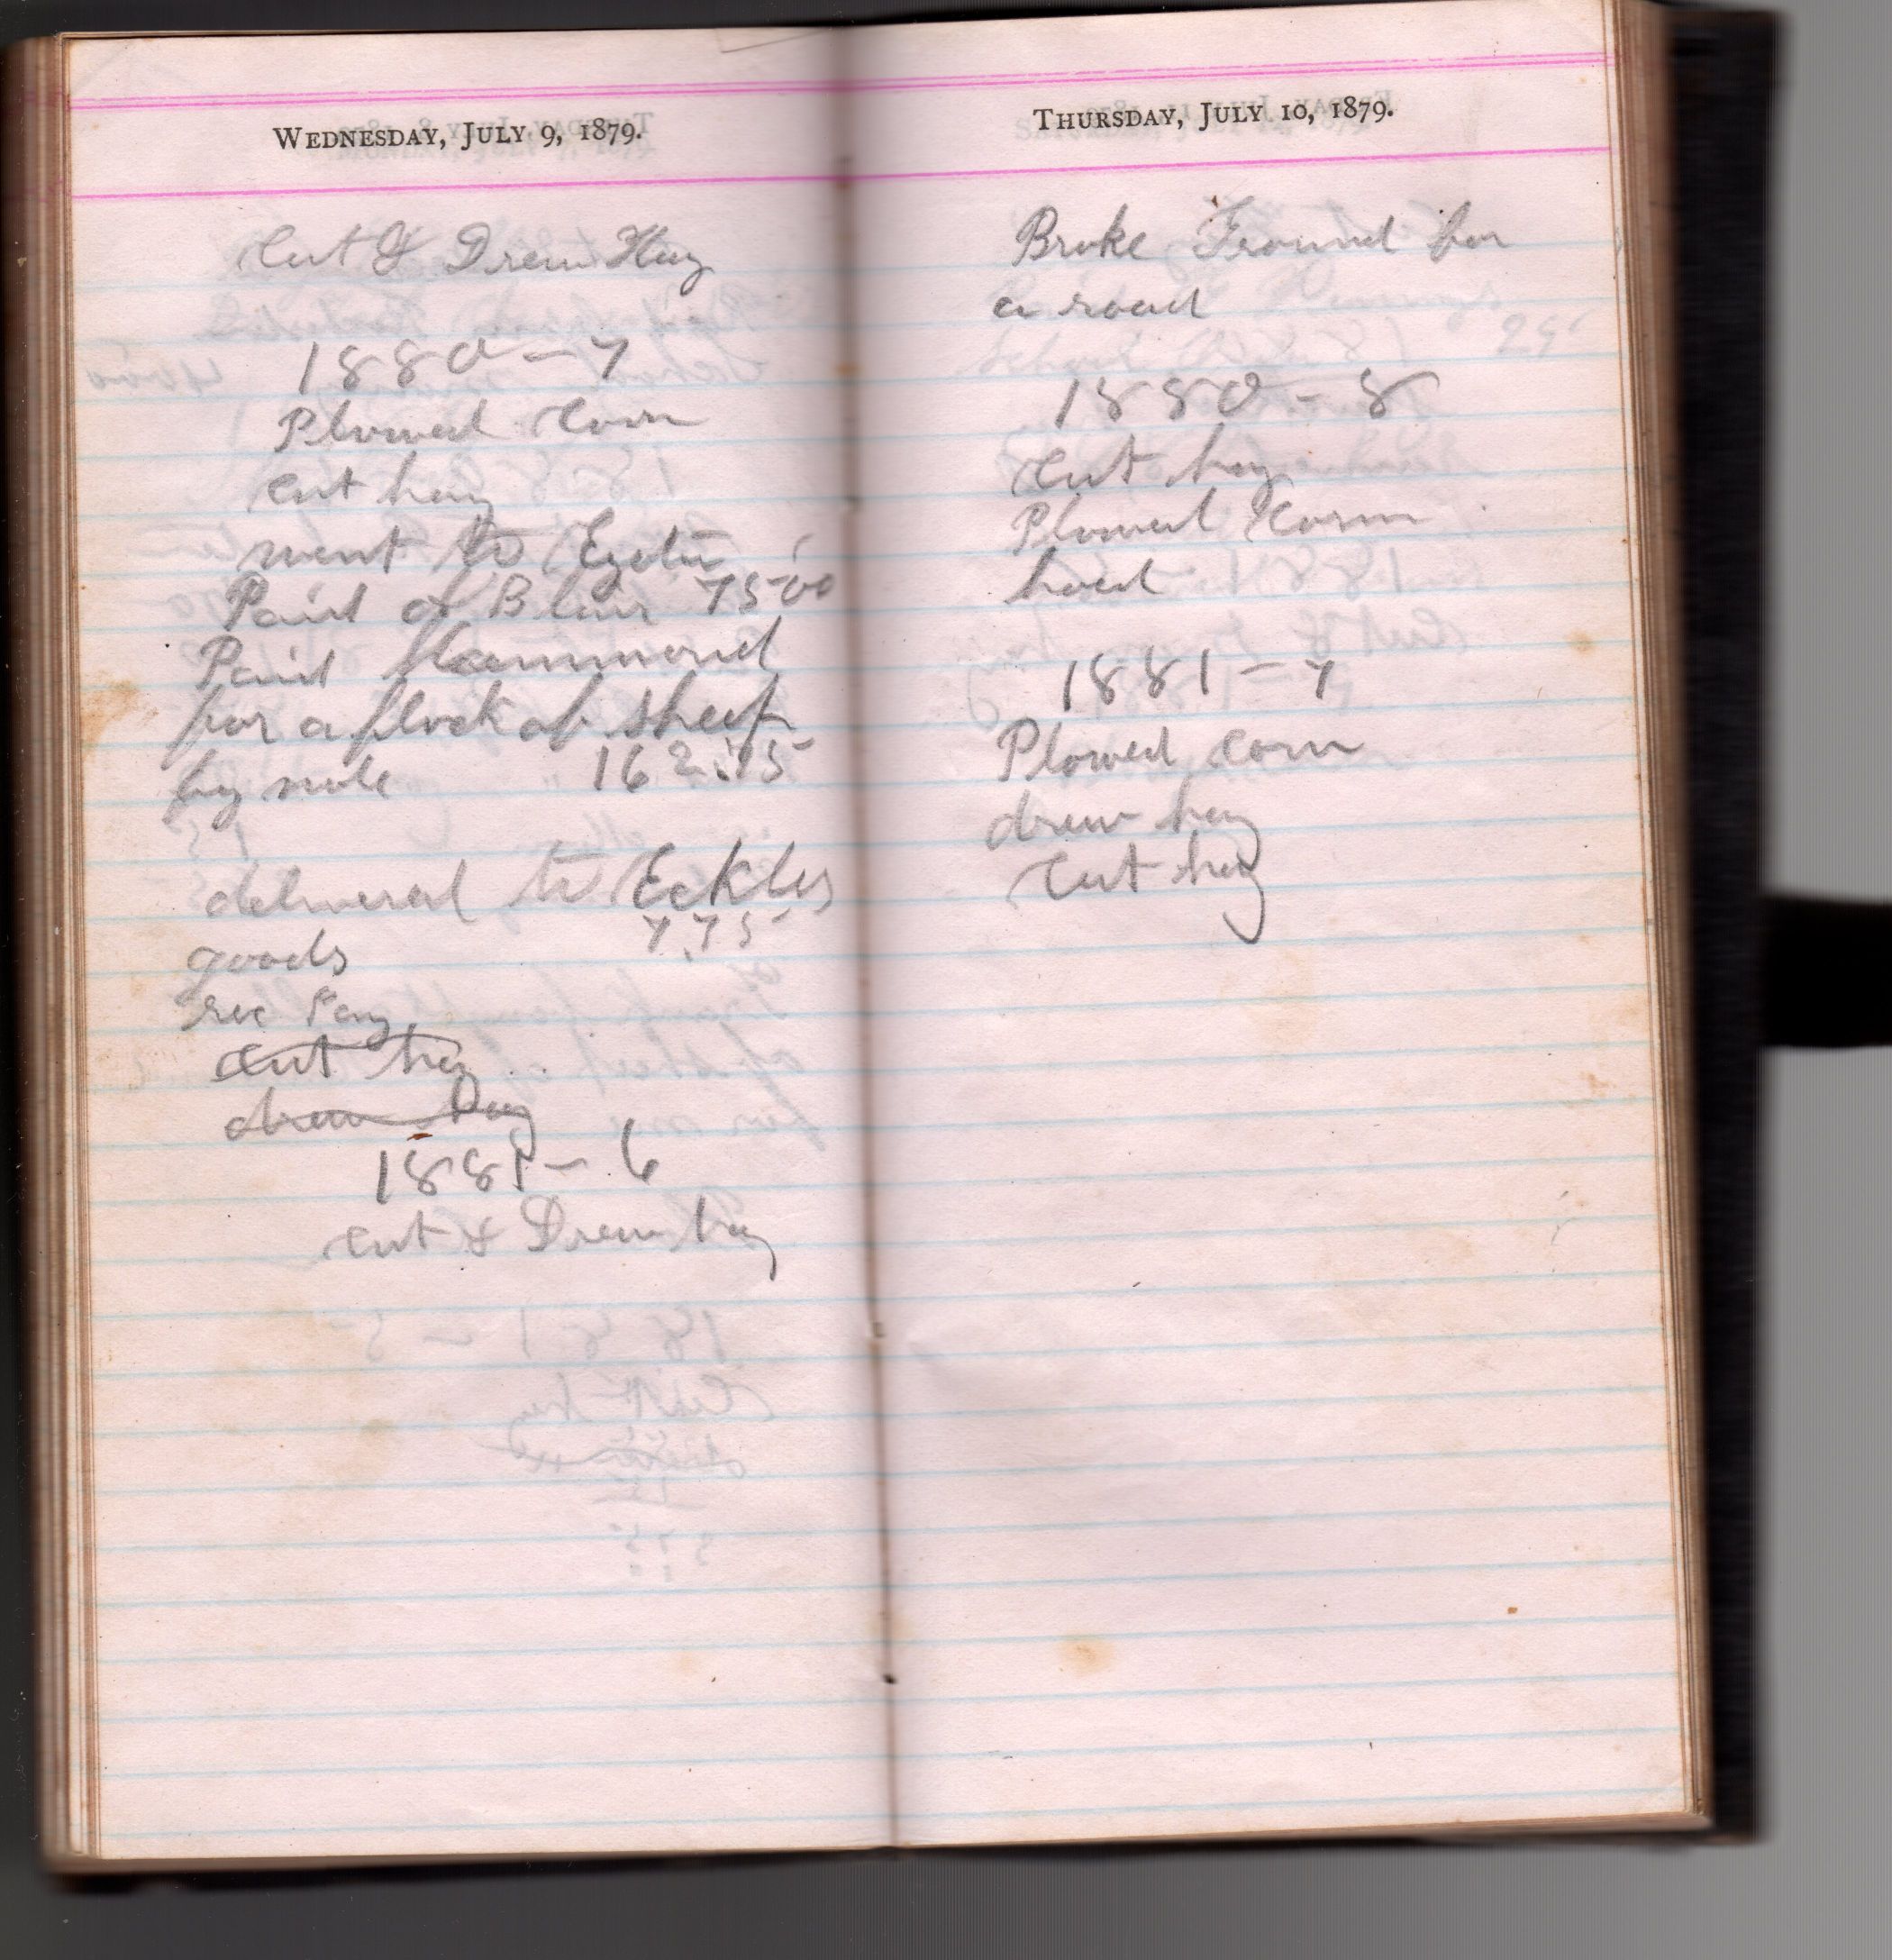 WEDNESDAY, JULY 9, 1879.
Cut & Drew Hay
1880 - 7
Plowed Corn
cut hay
went to Exeter
Paid of Blair 75-00
Paid Hammond
for a flock of sheep
by note 162.75
delivered to Eckles
goods 7.75
rec Pay
cut hay
drew Day
1881 - 6
cut & Drew hay
THURSDAY, JULY 10, 1879.
Broke Ground for
a road
1880 - 8
Cut hay
Plowed Corn
hoed
1881 - 7
Plowed corn
drew hay
Cut hay